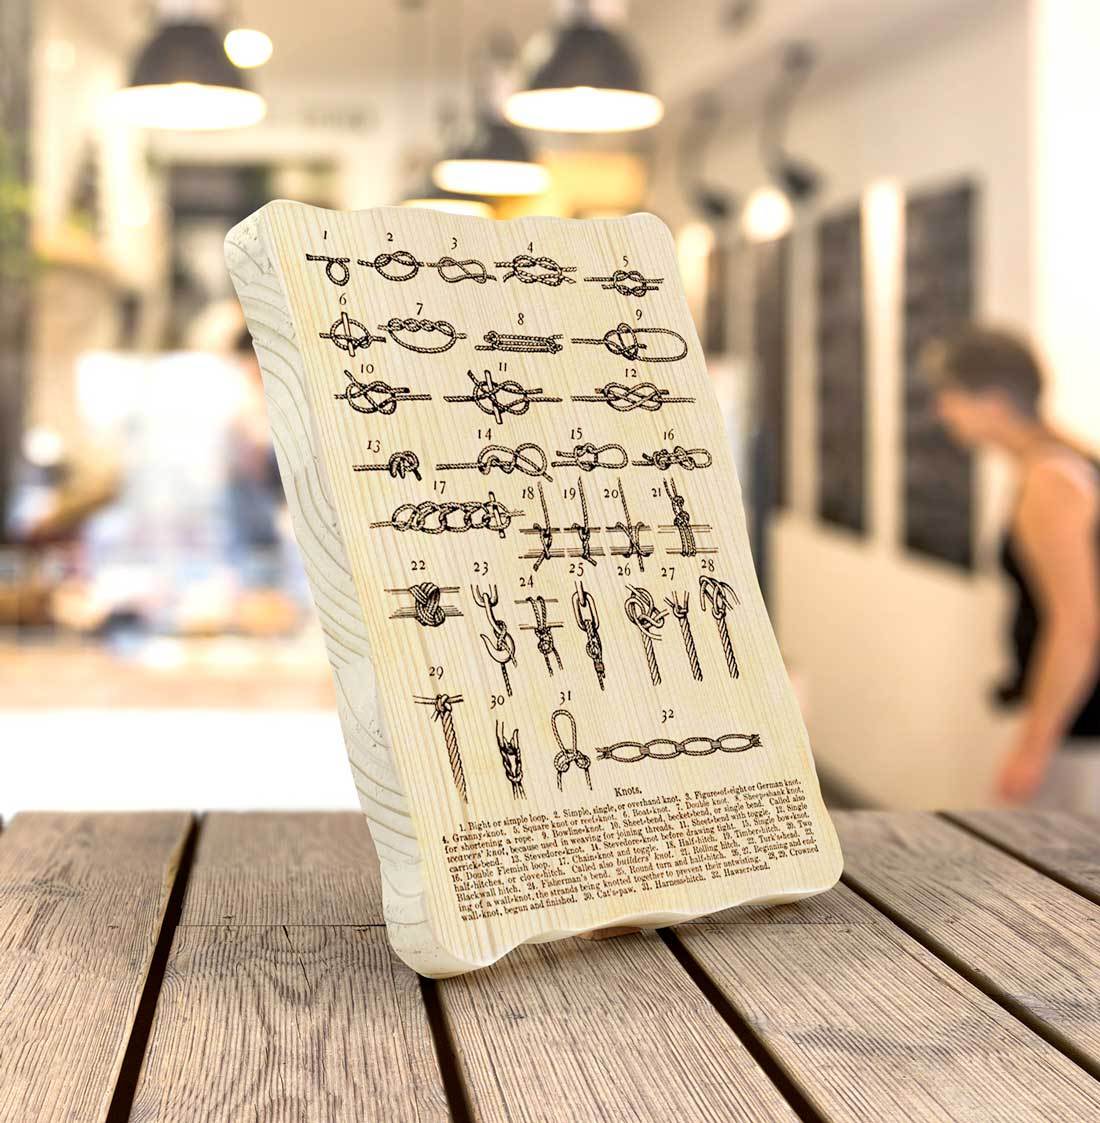 1 2 3 4 5
6 7 8 9
10 11 12
13 14 15 16
17 18 19 20 21
22 23 24 25 26 27 28
29 30 31 32
Knots.
1. Bight or simple loop. 2. Simple, single, or overhand knot. 3. Figure-of-eight or German knot.
4. Granny-knot. 5. Square knot or reef-knot. 6. Boat-knot. 7. Double knot. 8. Sheepshank knot,
for shortening a rope. 9. Bowline-knot. 10. Sheet-bend, becket-bend, or single bend. Called also
weavers' knot, because used in weaving for joining threads. 11. Sheet-bend with toggle. 12. Single
carrick-bend. 13. Stevedore-knot. 14. Stevedore-knot before drawing tight. 15. Single bow-knot.
16. Double Flemish loop. 17. Chain-knot and toggle. 18. Half-hitch. 19. Timber-hitch. 20. Two
half-hitches, or clove-hitch. Called also builders' knot. 21. Rolling hitch. 22. Turk's-head. 23.
Blackwall hitch. 24. Fisherman's bend. 25. Round turn and half-hitch. 26, 27. Beginning and end-
ing of a wall-knot, the strands being knotted together to prevent their untwisting. 28, 29. Crowned
wall-knot, begun and finished. 30. Cat's-paw. 31. Harness-hitch. 32. Hawser-bend.